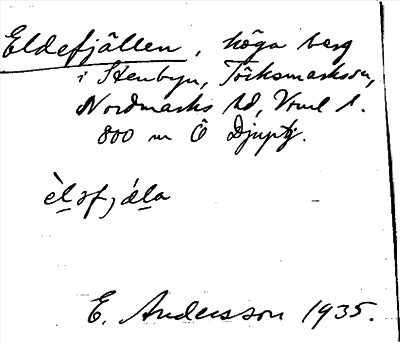 Eldefjällen, höga berg
i Stenbyn, Töcksmarks sn,
Nordmarks hd, Vrml l.
800 m Ö Djuptj.
èl̲əfjál̲a
E. Andersson 1935.